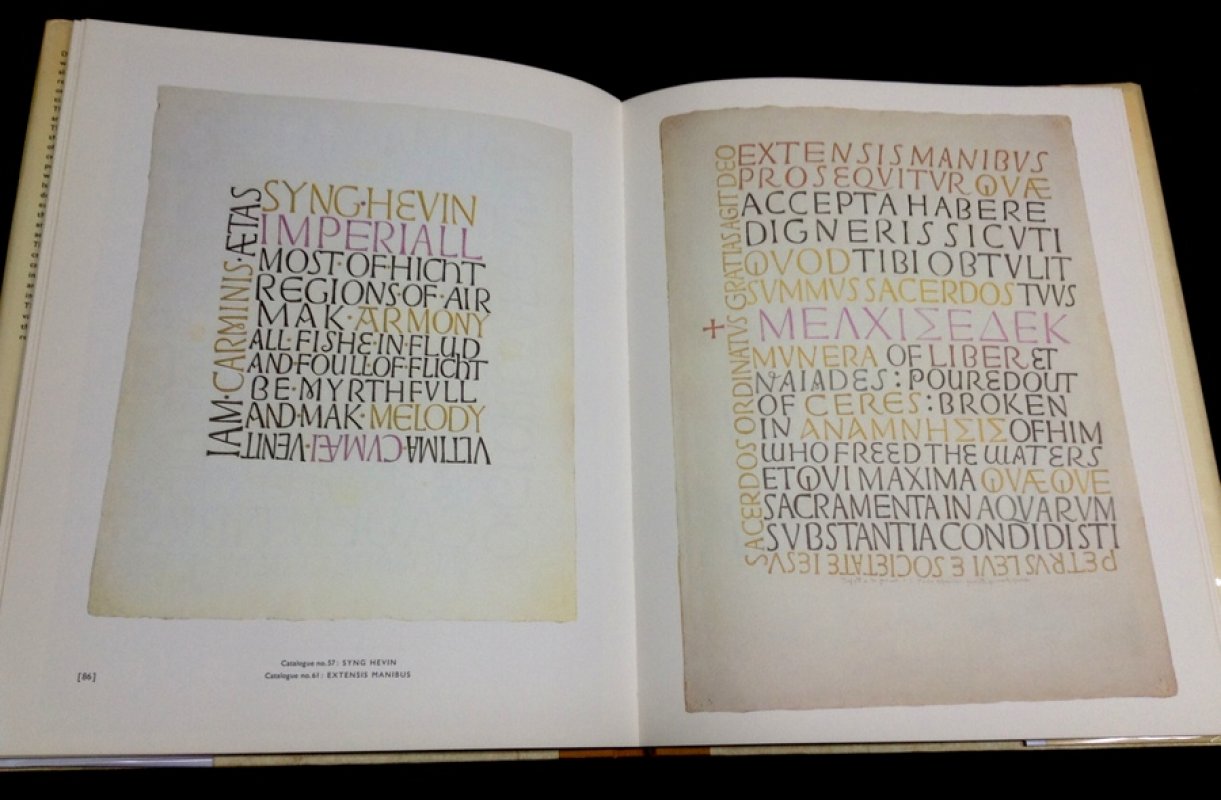 SYNG·HEVIN
IMPERIALL
MOST·OF·HICHT
REGIONS·OF·AIR
MAK·ARMONY
ALL·FISHE·IN·FLUD
AND·FOULL·OF·FLICHT
BE·MYRTHFULL
AND·MAK·MELODY
VLTIMA·CVMÆI·VENIT
IAM·CARMINIS·ÆTAS
[86]
Catalogue no.57: SYNG HEVIN
Catalogue no.61: EXTENSIS MANIBUS
EXTENSIS MANIBVS
PROSEQVITVR QVÆ
ACCEPTA HABERE
DIGNERIS SICVTI
QVOD TIBI OBTVLIT
SVMMVS SACERDOS TVVS
ΜΕΛΧΙΣΕΔΕΚ
MVNERA OF LIBER ET
NAIADES : POURED OUT
OF CERES : BROKEN
IN ΑΝΑΜΝΗΣΙΣ OF HIM
WHO FREED THE WATERS
ET QVI MAXIMA QVÆQVE
SACRAMENTA IN AQVARVM
SVBSTANTIA CONDIDISTI
PETRVS LEVI E SOCIETATE IESVS
SACERDOS ORDINATVS GRATIAS AGIT DEO